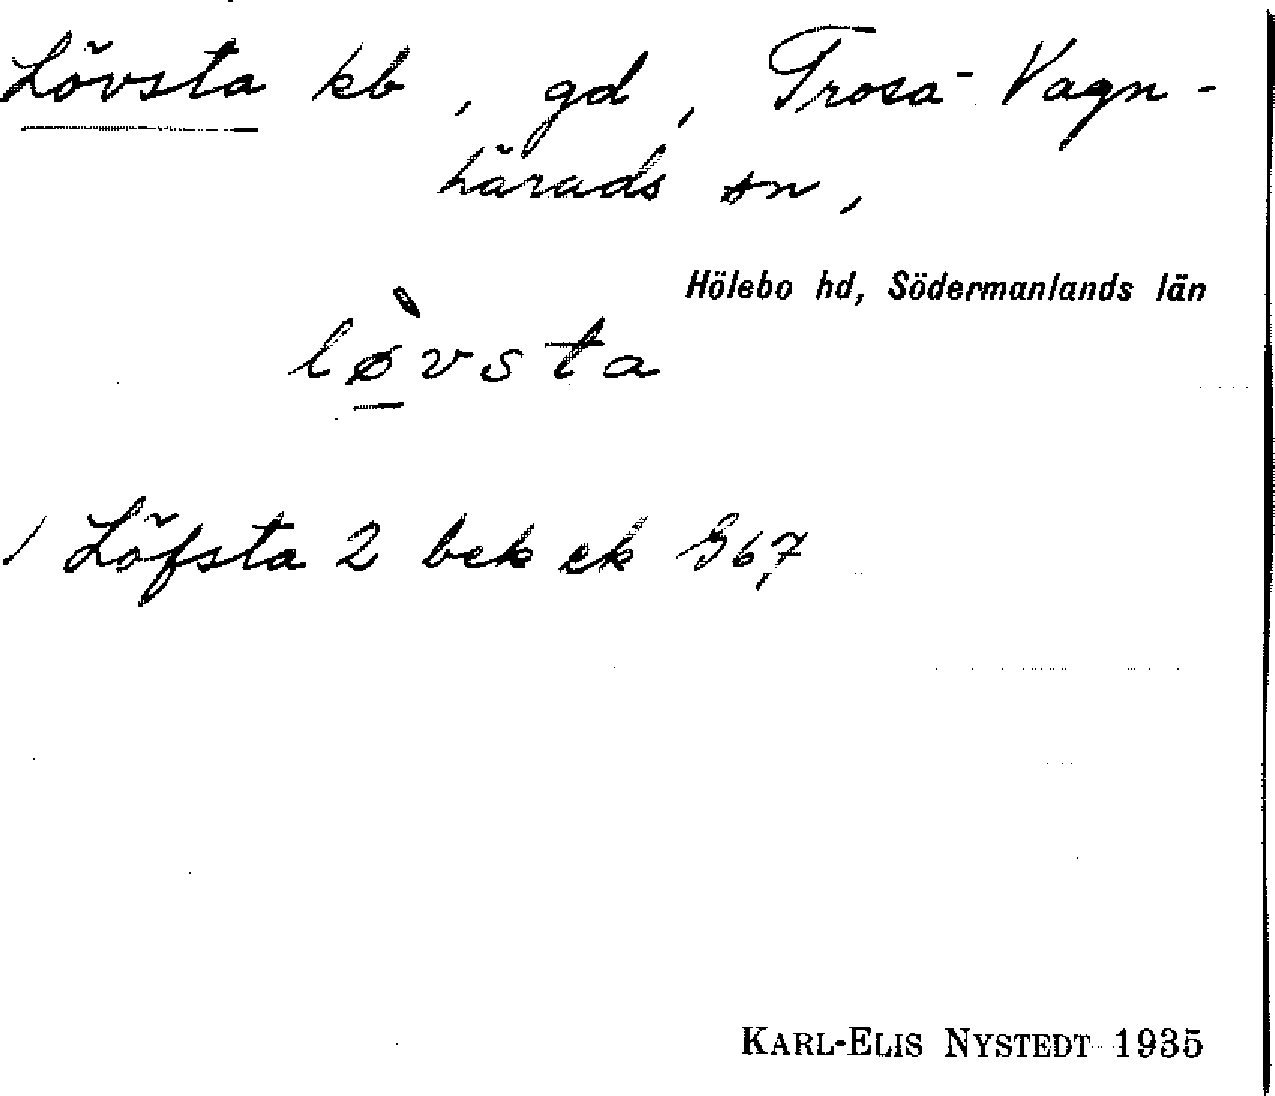 Lövsta kb, gd, Trosa-Vagn-
härads sn,
Hölebo hd, Södermanlands län
lø̀vsta
1 Löfsta 2 bek ek G6,7
KARL-ELIS NYSTEDT 1935